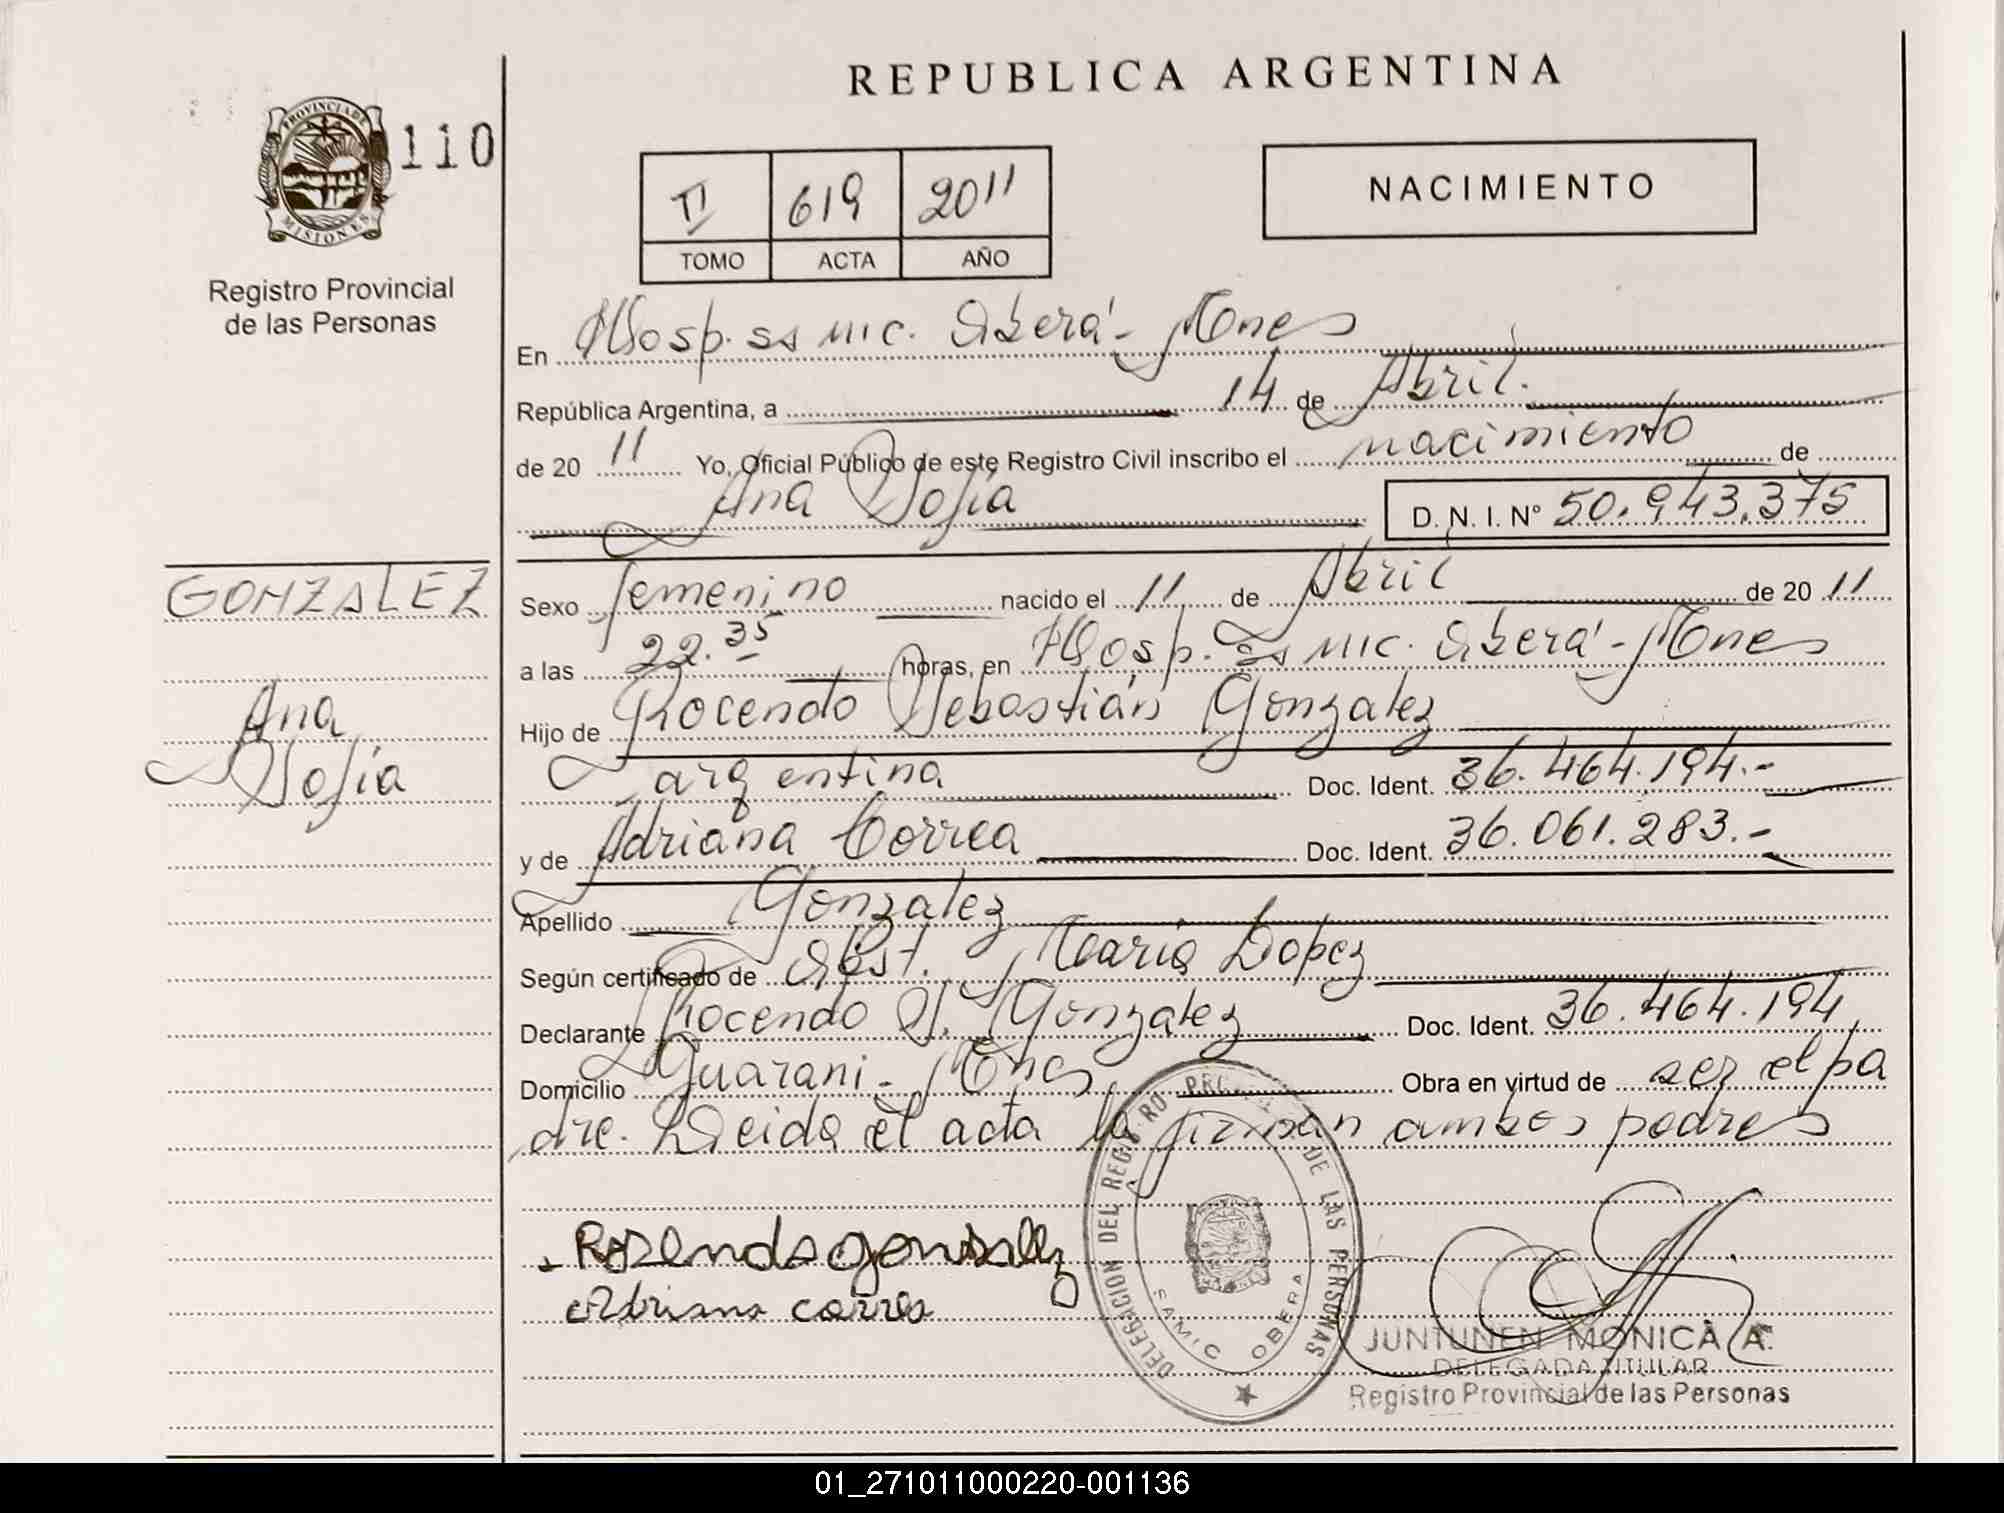 REPUBLICA ARGENTINA
PROVINCIA DE
MISIONES
110
Registro Provincial
de las Personas
II 619 2011
TOMO ACTA AÑO
NACIMIENTO
En Hosp. SAMIC. Oberá - Mnes
República Argentina, a 14 de Abril.
de 20 11 Yo, Oficial Público de este Registro Civil inscribo el nacimiento de
Ana Sofía D. N. I. Nº 50.943.375
GONZALEZ
Ana
Sofía
Sexo femenino nacido el 11 de Abril de 20 11
a las 22.35 horas, en Hosp. SAMIC. Oberá - Mnes
Hijo de Rocendo Sebastián Gonzalez
argentina Doc. Ident. 36.464.194.-
y de Adriana Correa Doc. Ident. 36.061.283.-
Apellido Gonzalez
Según certificado de Obst. María Lopez
Declarante Rocendo S. Gonzalez Doc. Ident. 36.464.194
Domicilio Guarani - Mnes Obra en virtud de ser el pa
dre. Leida el acta la firman ambos padres
Rozendo gonzalez
Adriana correa
DELEGACION DEL REGISTRO PROVINCIAL DE LAS PERSONAS
SAMIC OBERA
JUNTUNEN MONICA A.
DELEGADA TITULAR
Registro Provincial de las Personas
01_271011000220-001136